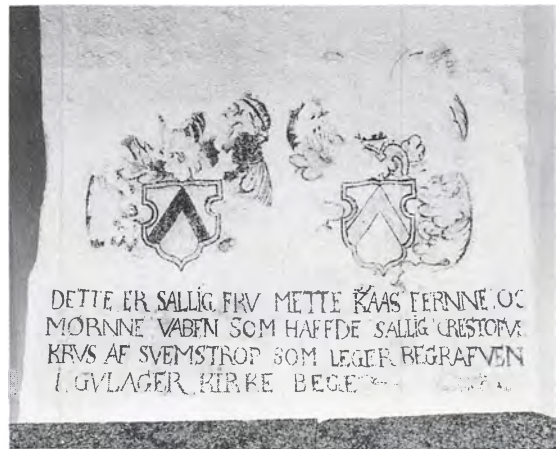 DETTE ER SALLIG FRV METTE KAAS FERNNE OC
MØRNNE VABEN SOM HAFFDE SALLIG CRESTOFVE
KRVS AF SVEMSTROP SOM LEGER BEGRAFVEN
I GVLAGER KIRKE BEGE